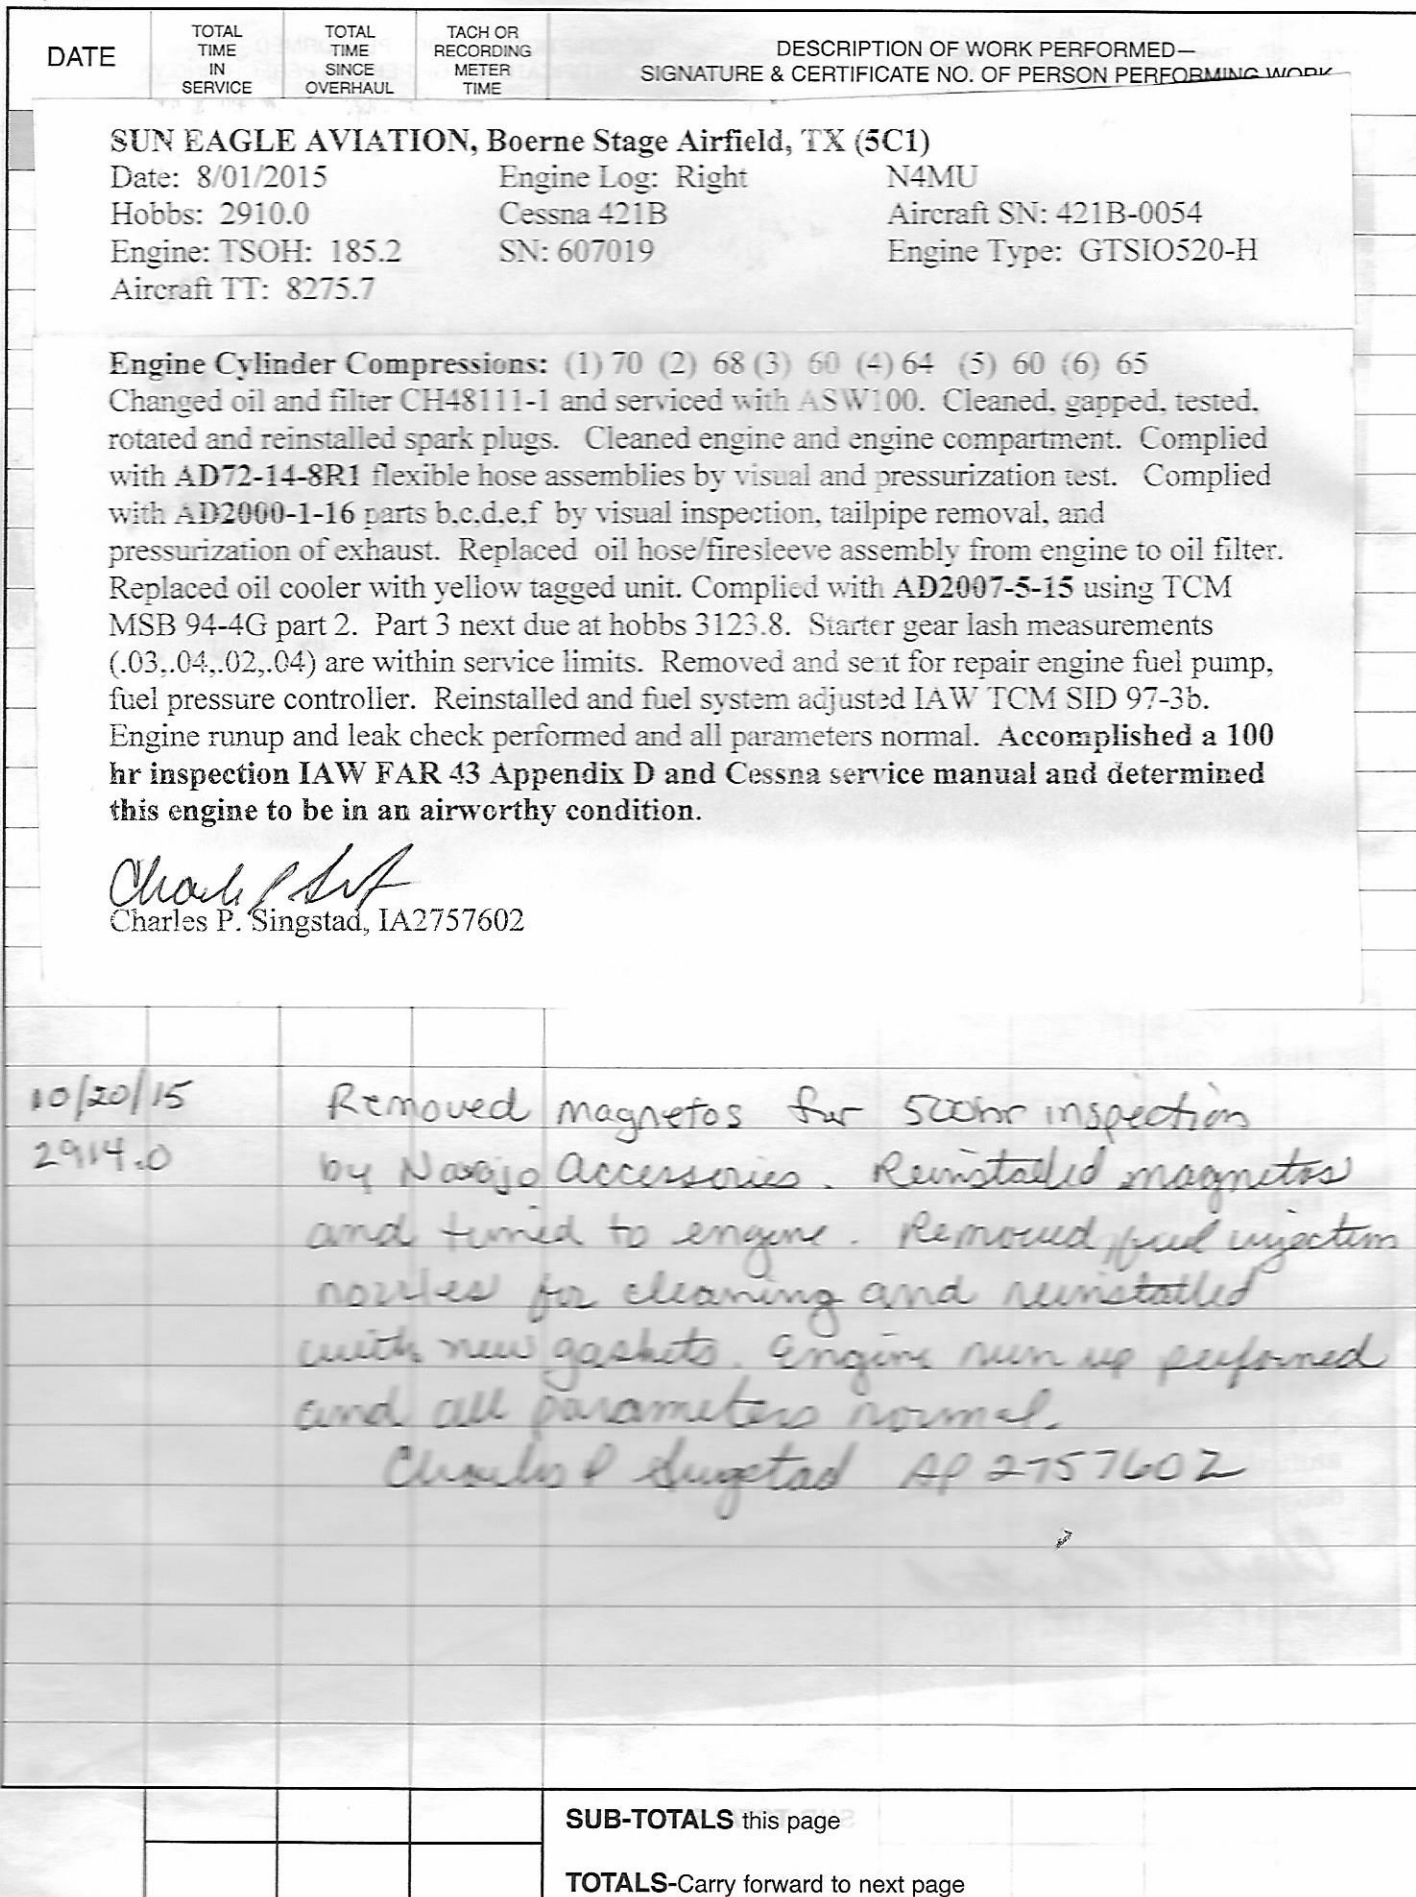 DATE
TOTAL TIME IN SERVICE
TOTAL TIME SINCE OVERHAUL
TACH OR RECORDING METER TIME
DESCRIPTION OF WORK PERFORMED—
SIGNATURE & CERTIFICATE NO. OF PERSON PERFORMING WORK
SUN EAGLE AVIATION, Boerne Stage Airfield, TX (5C1)
Date: 8/01/2015 Engine Log: Right N4MU
Hobbs: 2910.0 Cessna 421B Aircraft SN: 421B-0054
Engine: TSOH: 185.2 SN: 607019 Engine Type: GTSIO520-H
Aircraft TT: 8275.7
Engine Cylinder Compressions: (1) 70 (2) 68 (3) 60 (4) 64 (5) 60 (6) 65
Changed oil and filter CH48111-1 and serviced with ASW100. Cleaned, gapped, tested,
rotated and reinstalled spark plugs. Cleaned engine and engine compartment. Complied
with AD72-14-8R1 flexible hose assemblies by visual and pressurization test. Complied
with AD2000-1-16 parts b,c,d,e,f by visual inspection, tailpipe removal, and
pressurization of exhaust. Replaced oil hose/firesleeve assembly from engine to oil filter.
Replaced oil cooler with yellow tagged unit. Complied with AD2007-5-15 using TCM
MSB 94-4G part 2. Part 3 next due at hobbs 3123.8. Starter gear lash measurements
(.03,.04,.02,.04) are within service limits. Removed and sent for repair engine fuel pump,
fuel pressure controller. Reinstalled and fuel system adjusted IAW TCM SID 97-3b.
Engine runup and leak check performed and all parameters normal. Accomplished a 100
hr inspection IAW FAR 43 Appendix D and Cessna service manual and determined
this engine to be in an airworthy condition.
Charles P. Singstad, IA2757602
10/20/15 Removed magnetos for 500hr inspection
2914.0 by Navajo Accessories. Reinstalled magnetos
and timed to engine. Removed fuel injection
nozzles for cleaning and reinstalled
with new gaskets. Engine run up performed
and all parameters normal.
Charles P Singstad AP 2757602
SUB-TOTALS this page
TOTALS-Carry forward to next page